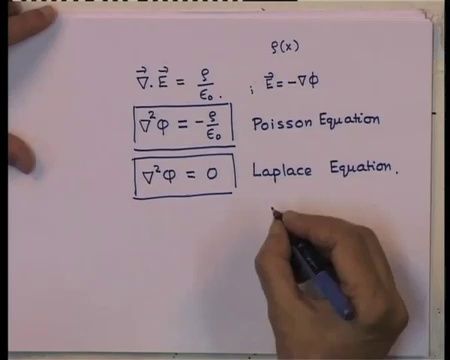 ρ(x)
∇⃗.E⃗ = ρ/ε₀. ; E⃗ = -∇Φ
∇²Φ = -ρ/ε₀ Poisson Equation
∇²Φ = 0 Laplace Equation.